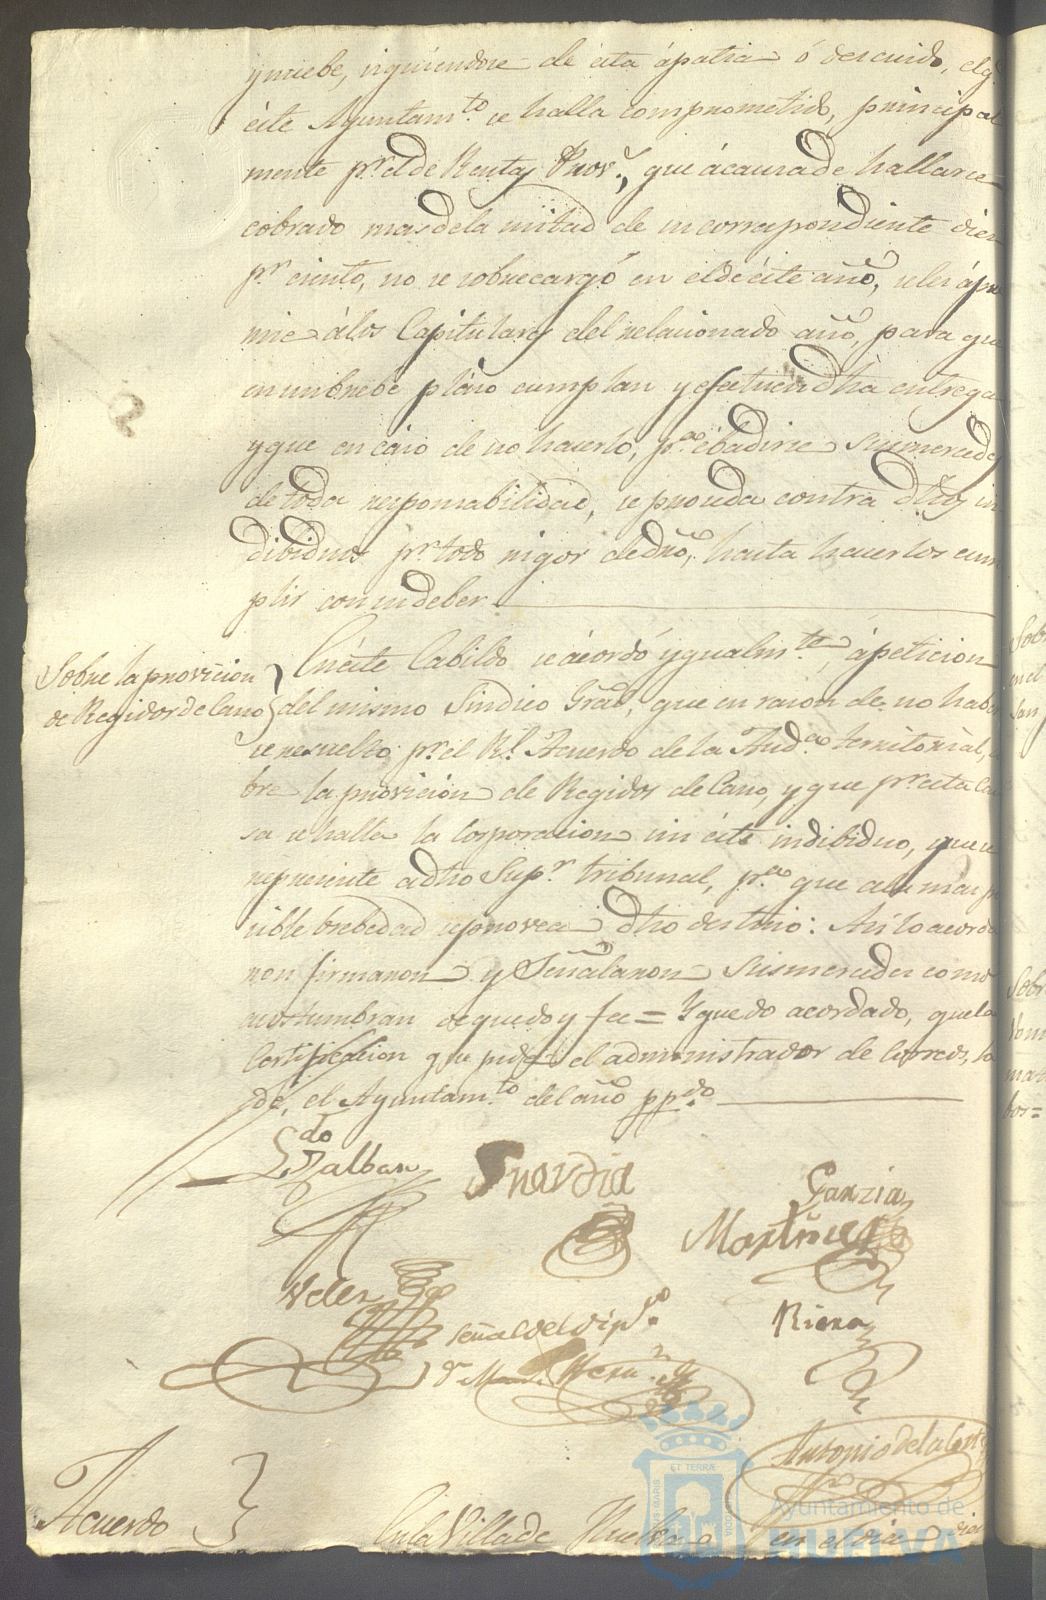 y nuebe, siguiendose de ésta ápatia ó descuido, el q.
éste Ayuntam.to se halla comprometido, principal
mente p.r el de Rentas Prov.s, que ácausa de hallarse
cobrado mas de la mitad de su correspondiente diez
p.r ciento, no se sobrecargó en el de éste año, se les ápre
mie álos Capitulares del relacionado año, para que
en un brebe plazo cumplan y efectuen dha entrega
y que en caso de no hacerlo, p.a ebadirse Susmercedes
de toda responsabilidad, se proceda contra dhos in
dibiduos p.r todo rigor de dro, hasta hacerlos cum
plir con su deber.
Sobre la provicion
de Regidor de Cano
En éste Cabildo se ácordó ygualm.te, ápeticion
del mismo Sindico Gral, que en razon de no haber
se resuelto p.r el R.l Acuerdo de la Aud.a territorial, so
bre la provición de Regidor de Cano, y que p.r esta cau
sa se halla la Corporacion sin éste indibiduo, que se
represente a dho Sup.r tribunal, p.a que ala mas po
sible brebedad se provea dho destino: Asi lo acorda
ron firmaron y Señalaron Susmercedes como
acostumbran de que doy fee = Y quedo acordado, que la
Certificacion que pide el administrador de Correos, la
dé, el Ayuntam.to del año pp.do
L.do Zalban
Garzia
Martinez
Velez
Señal del Dip.do
Riera
D.n M. Hern.z
Antonio de la Corte
Acuerdo
En la Villa de Huelva en el dia
Sob
Sobr
ET TERRÆ
Ayuntamiento de
HUELVA